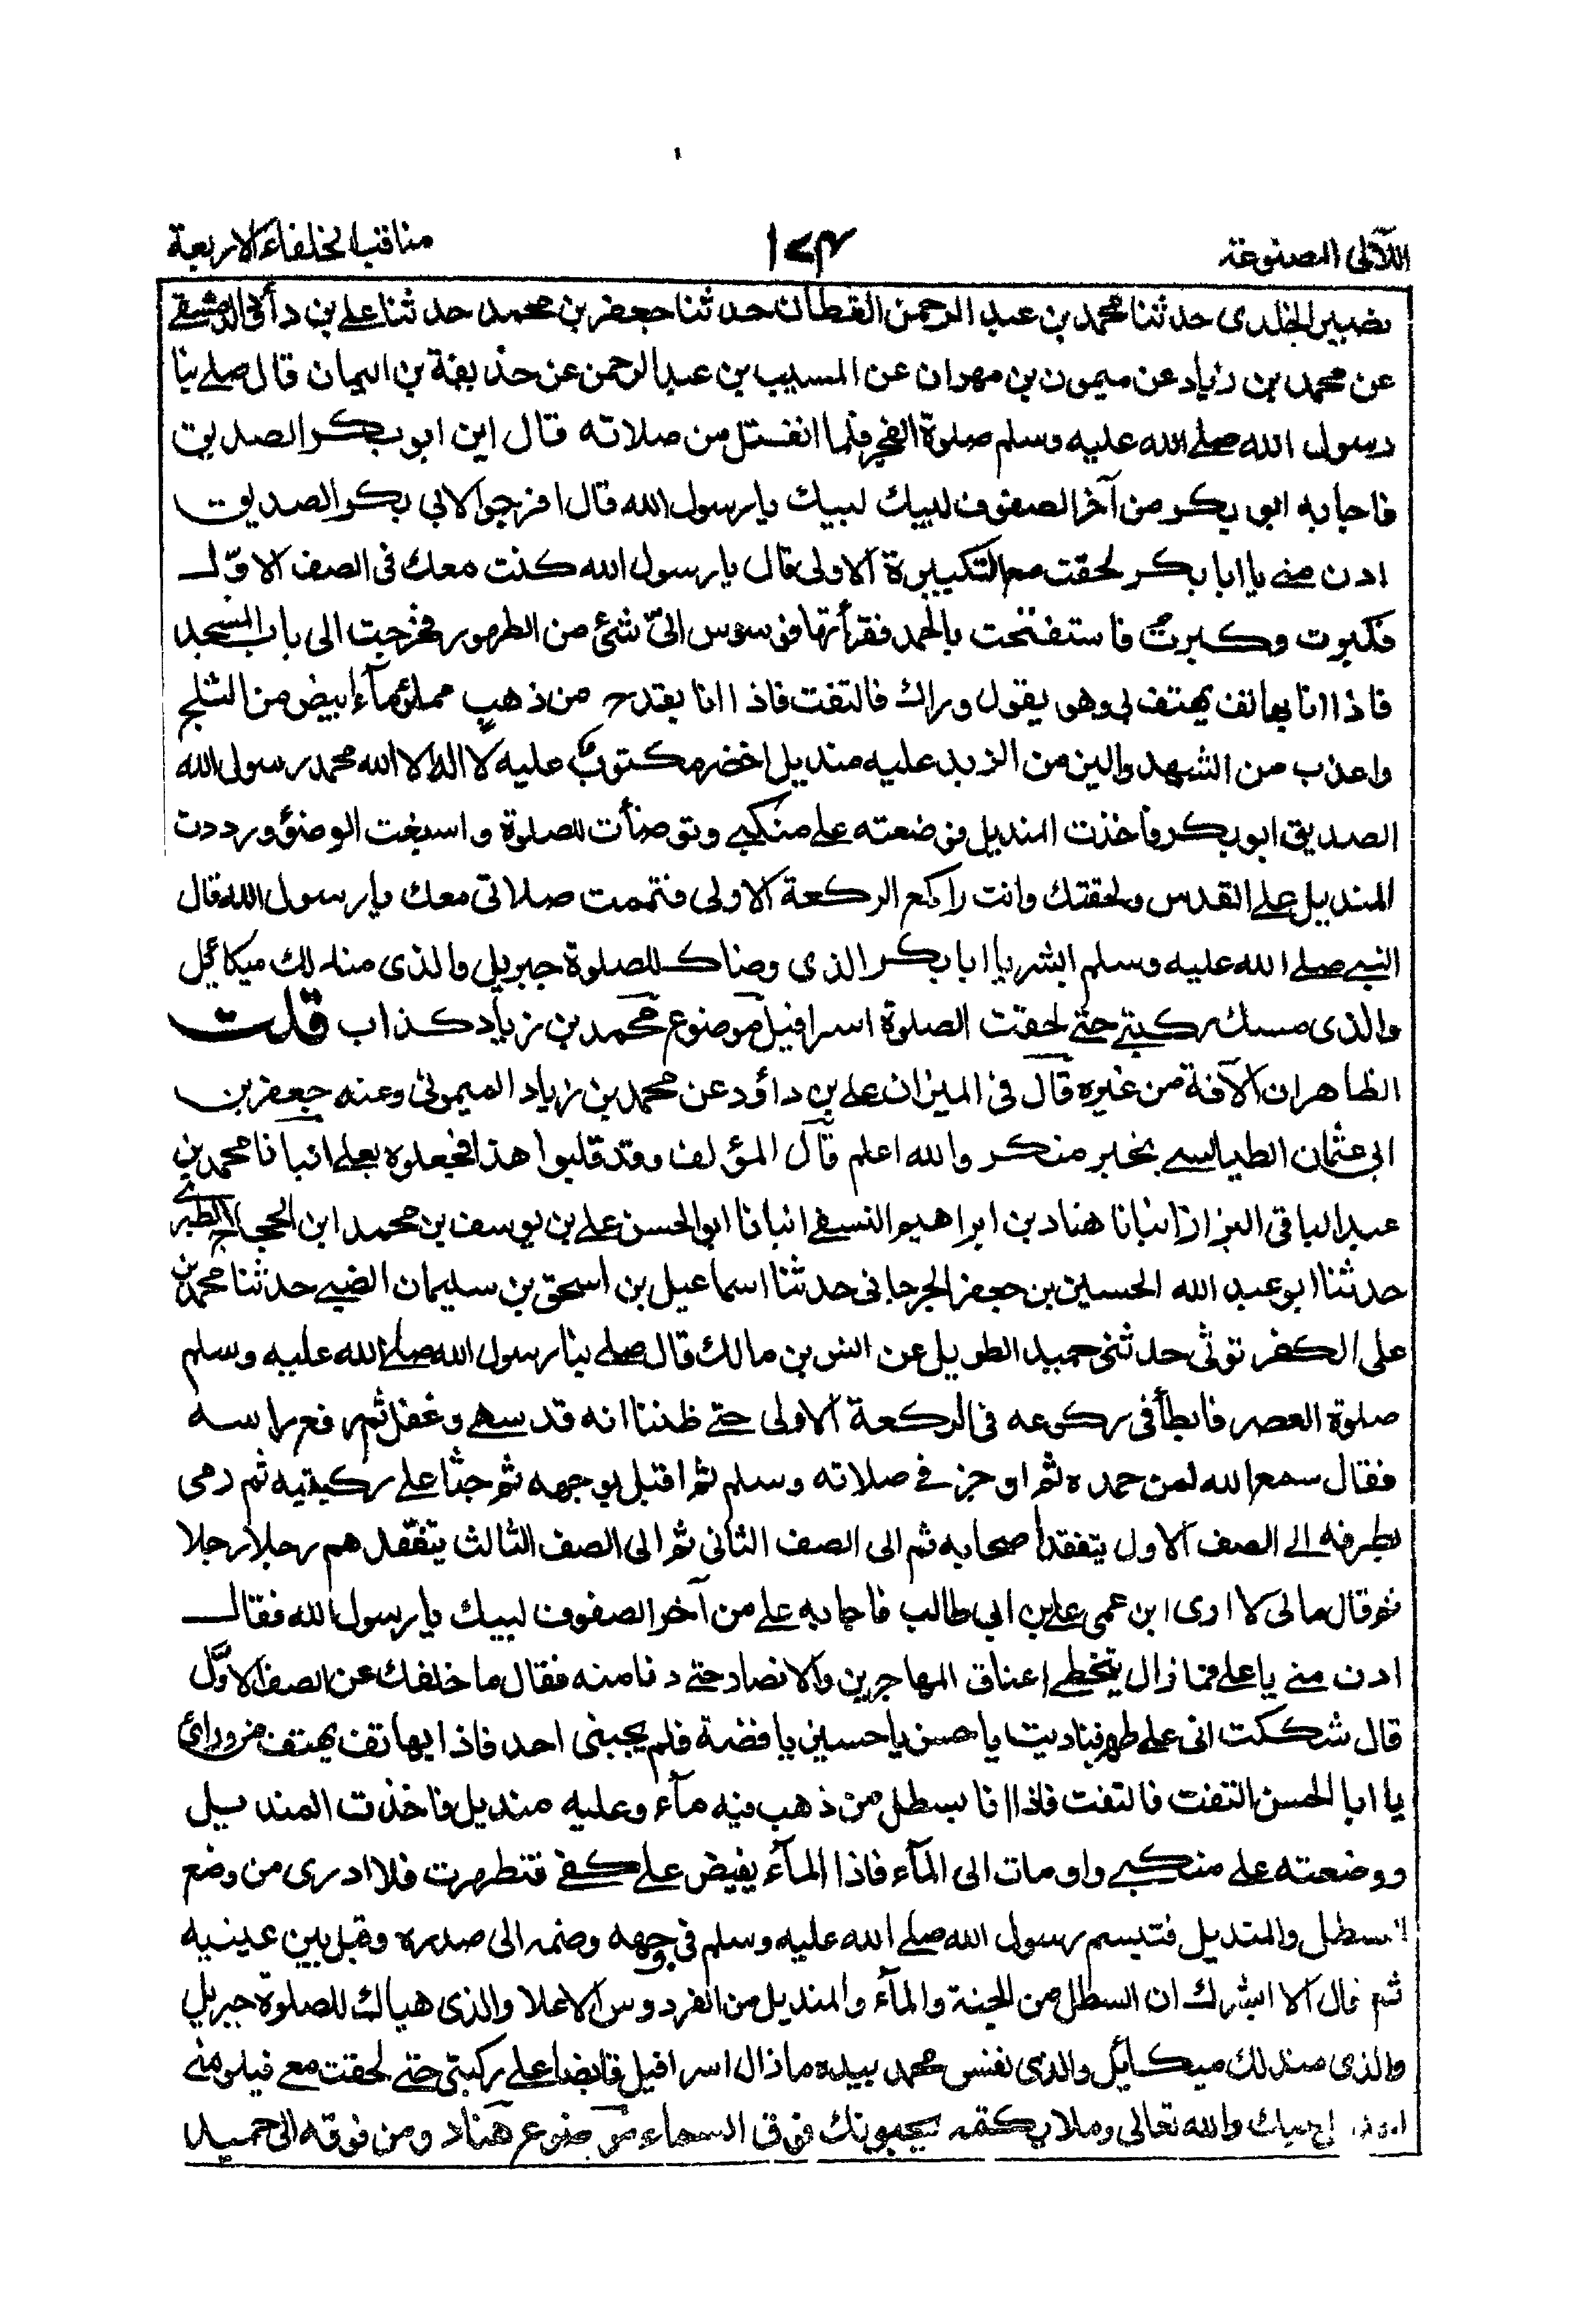 اللآلى المصنوعة ١٧٤ مناقب الخلفاء الاربعة
نصير الخلدى حدثنا محمد بن عبد الرحمن القطان حدثنا جعفر بن محمد حدثنا على بن دأفى الدمشقے
عن محمد بن زياد عن ميمون بن مهران عن المسيب بن عبد الرحمن عن حذيفة بن اليمان قال صلے بنا
رسول الله صلے الله عليه وسلم صلوة الفجر فلما انفتل من صلاته قال اين ابو بكر الصديق
فاجابه ابو بكر من آخر الصفوف لبيك لبيك يا رسول الله قال افرجوا لابي بكر الصديق
ادن منے يا ابا بكر لحقت مع التكبيرة الاولى قال يا رسول الله كنت معك فى الصف الاوّل
فكبرت وكبرتُ فاستفتحت بالحمد فقرأتها فوسوس الىّ شئ من الطهور فخرجت الى باب المسجد
فاذا انا بهاتف يهتف بى وهو يقول وراك فالتفت فاذا انا بقدح من ذهبٍ مملئ مآء ابيض من الثلج
واعذب من الشهد والين من الزبد عليه منديل اخضر مكتوبٌ عليه لا اله الا الله محمد رسول الله
الصديق ابو بكر فاخذت المنديل فوضعته علے منكبے وتوضأت للصلوة واسبغت الوضوٴ ورددت
المنديل علے القدس ولحقتك وانت راكع الركعة الاولى فتممت صلاتى معك يا رسول الله قال
النبے صلے الله عليه وسلم ابشر يا ابا بكر الذى وضاك للصلوة جبريل والذى مندلك ميكائيل
والذى مسك ركبتے حتے لحقت الصلوة اسرافيل موضوع محمد بن زياد كذاب قلت
الظاهر ان الآفة من غيره قال فى الميزان على بن داؤد عن محمد بن زياد الميمونى وعنه جعفر بن
ابى عثمان الطيالسے بخبر منكر والله اعلم قال المؤلف وقد قلبوا هذا فجعلوه بعلے انبانا محمد بن
عبد الباقى البزاز انبانا هناد بن ابراهيم النسفے انبانا ابو الحسن علے بن يوسف بن محمد ابن الحجاج الطبرے
حدثنا ابو عبد الله الحسين بن جعفر الجرجانى حدثنا اسماعيل بن اسحق بن سليمان الضبے حدثنا محمد بن
على الكفرتوثى حدثنى حميد الطويل عن انس بن مالك قال صلے بنا رسول الله صلے الله عليه وسلم
صلوة العصر فابطأ فى ركوعه فى الركعة الاولى حتے ظننا انه قد سهے وغفل ثم رفع راسه
فقال سمع الله لمن حمده ثم اوجز فے صلاته وسلم ثم اقبل بوجهه ثم جثا علے ركبتيه ثم رمى
بطرفه الے الصف الاول يتفقد اصحابه ثم الى الصف الثانى ثم الى الصف الثالث يتفقدهم رجلا رجلا
ثم قال ما لى لا ارى ابن عمى علے بن ابي طالب فاجابه علے من آخر الصفوف لبيك يا رسول الله فقال
ادن منے يا علے فما زال يتخطے اعناق المهاجرين والانصار حتے دنا منه فقال ما خلفك عن الصف الاوَّل
قال شككت انى على طهر فناديت يا حسن يا حسين يا فضة فلم يجبنى احد فاذا بهاتف يهتف من ورائ
يا ابا الحسن التفت فالتفت فاذا انا بسطل من ذهب فيه مآء وعليه منديل فاخذت المنديل
ووضعته علے منكبے واومات الى المآء فاذا المآء يفيض علے كفے فتطهرت فلا ادرى من وضع
السطل والمنديل فتبسم رسول الله صلے الله عليه وسلم فى وجهه وضمه الى صدره وقبل بين عينيه
ثم قال الا ابشرك ان السطل من الجنة والمآء والمنديل من الفردوس الاعلا والذى هياك للصلوة جبريل
والذى مندلك ميكائيل والذى نفس محمد بيده ما زال اسرافيل قابضا علے ركبتى حتے لحقت معے فيلومنے
على حبك والله تعالى وملائكته يحبونك فوق السماء موضوع هناد ومن فوقه الى حميد